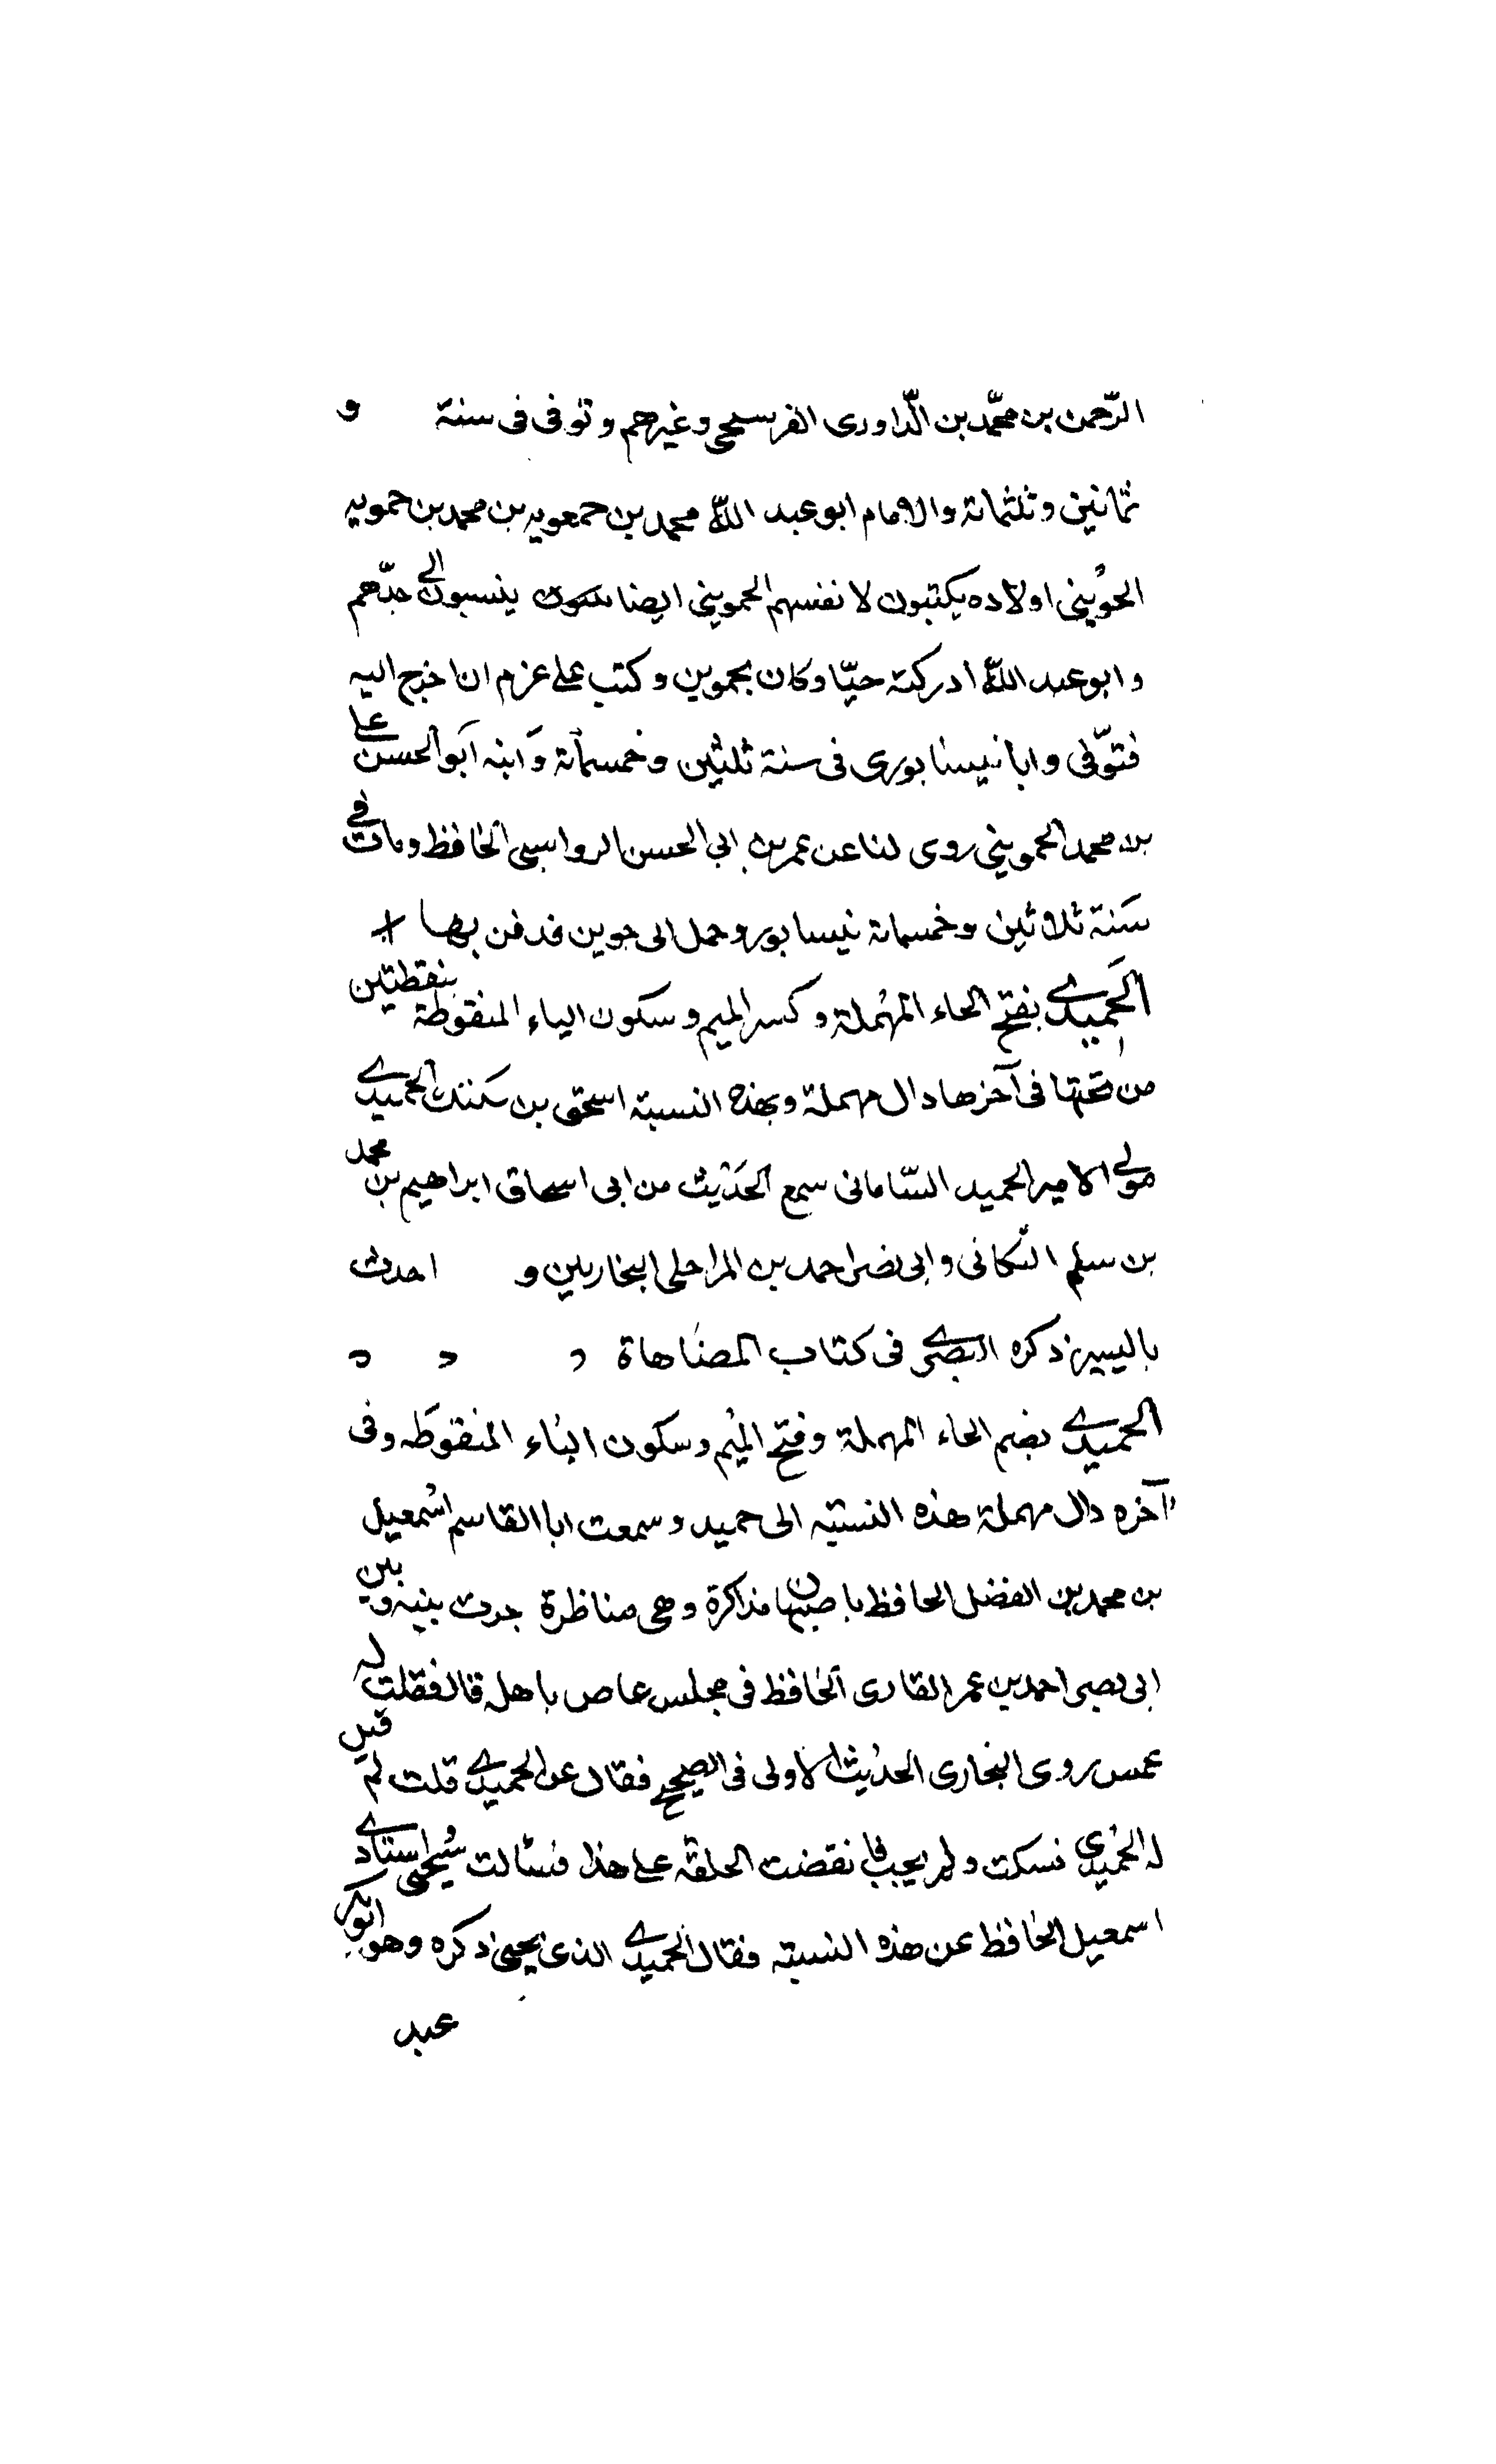 الرّحمن بن محمّد بن الّداودى الفرسحى وغيرهم وتوفى فى سنة و
ثمانين وثلثمائة والامام ابو عبد اللّه محمد بن حمعويه بن محمد بن حمويه
الجُوينى اولاده يكتبون لانفسهم الحموينى ايضا ينسبون الى جدّهم
وابو عبد اللّه ادركته حيّا وكان بجموين وكتب على عزم ان اخرج اليه
فتوّفى وابا نيسابورى فى سنة ثلثين وخمسمائة وَابنه اَبو الحسن على
بن محمد الحموينى روى لنا عن عمر بن ابى الحسن الرواسى الحافظ ومات فى
سَنة ثلاثين وخمسمائة نيسابور وحمل الى جوين فدفن بها
الحَميدى بفتح الحاء المهملة وكسر الميم وسكون الياء المنقوطة بنقطتين
من تحتها فى آخرها دال مهملة وبهذه النسبة اسحق بن الحميدى
مولى الامير الحميد السّامانى سمع الحَديث من ابى اسحاق ابراهيم بن محمد
بن سلم التكانى وابى نصر احمد بن المراحلى البخاريين و احدث
باليسير ذكره البصرى فى كتاب المضاهاة
الحميدى بضم الحاء المهملة وفتح الميم وسكون الياء المنقوطَه وفى
آخره دال مهملة هذه النسبته الى حميد وسمعت ابا القاسم اسمعيل
بن محمد بن الفضل الحافظ باصبهان مذاكرة وهى مناظرة جرت بينه وبين
ابى نصر احمد بن عمر القارى الحافظ فى مجلس عاص باهله قال فقلت له
عمس روى البخارى الحديث الاولى فى الصحيح فقال عن الحميدى قلت لم قيل
له الحميدى فسكت ولم يجب فا نقضت الحلقة على هذا فسالت شيخى استادى
اسمعيل الحافظ عن هذه النسبته فقال الحميدى الذى يحيى ذكره وهو ابوبكر
عبد